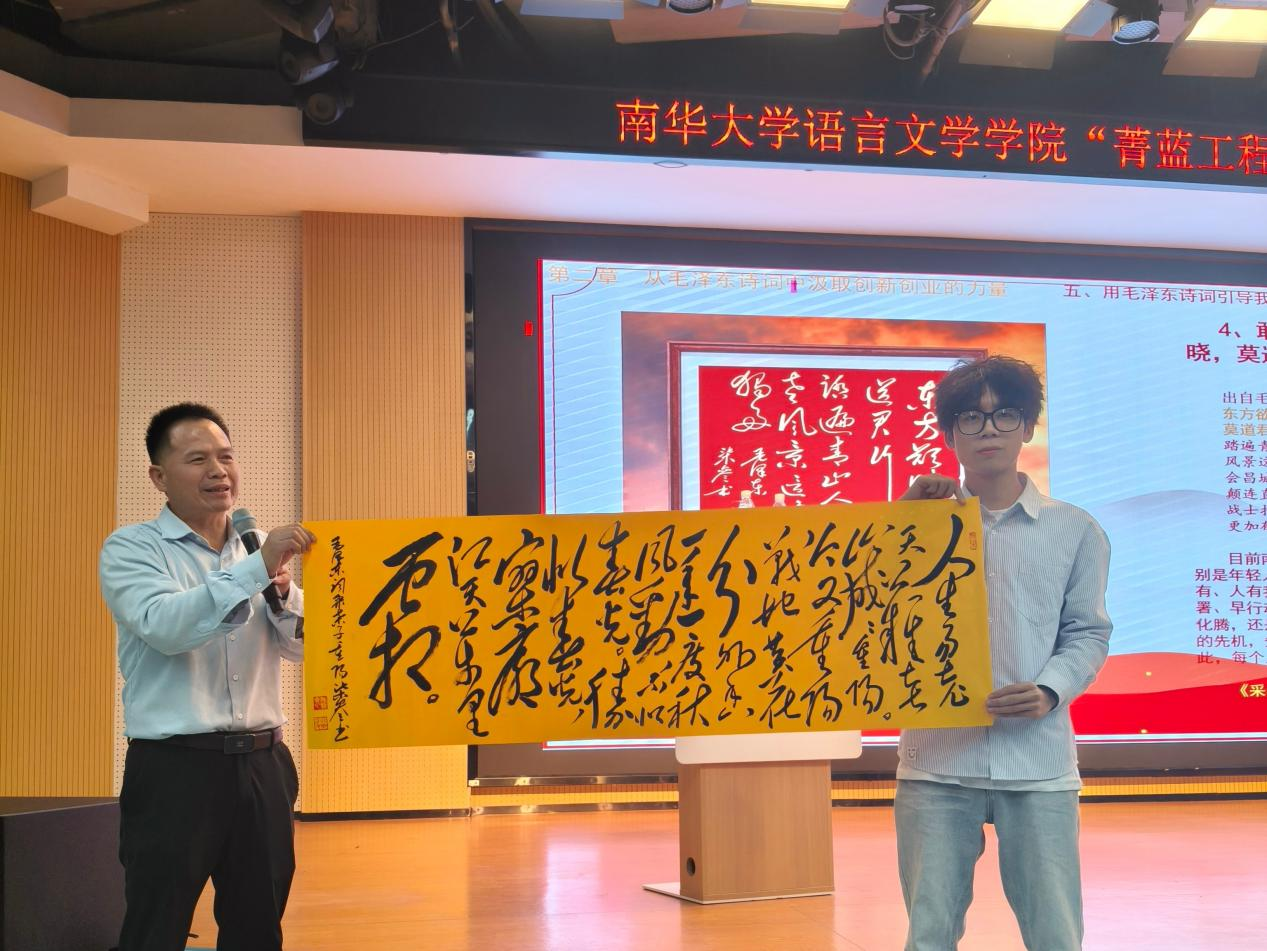 南华大学语言文学学院“菁蓝工程
第二章 从毛泽东诗词中汲取创新创业的力量
五、用毛泽东诗词引导我
4、敢
晓，莫道
出自毛
东方欲
莫道君
踏遍青
风景这
会昌城
颠连直
战士指
更加有
目前南
别是年轻人
有、人有我
署、早行动
化腾，还是
的先机，
此，每个
《采
东方欲
君行
踏遍青山人
老风景这
独好
毛泽东
人生易老
天难老
岁岁重阳。
今又重阳
战地黄花
分外香
一年一度秋
风劲不似
春光。胜
似春光，
寥廓
江天万里
霜。
毛泽东词采桑子重阳